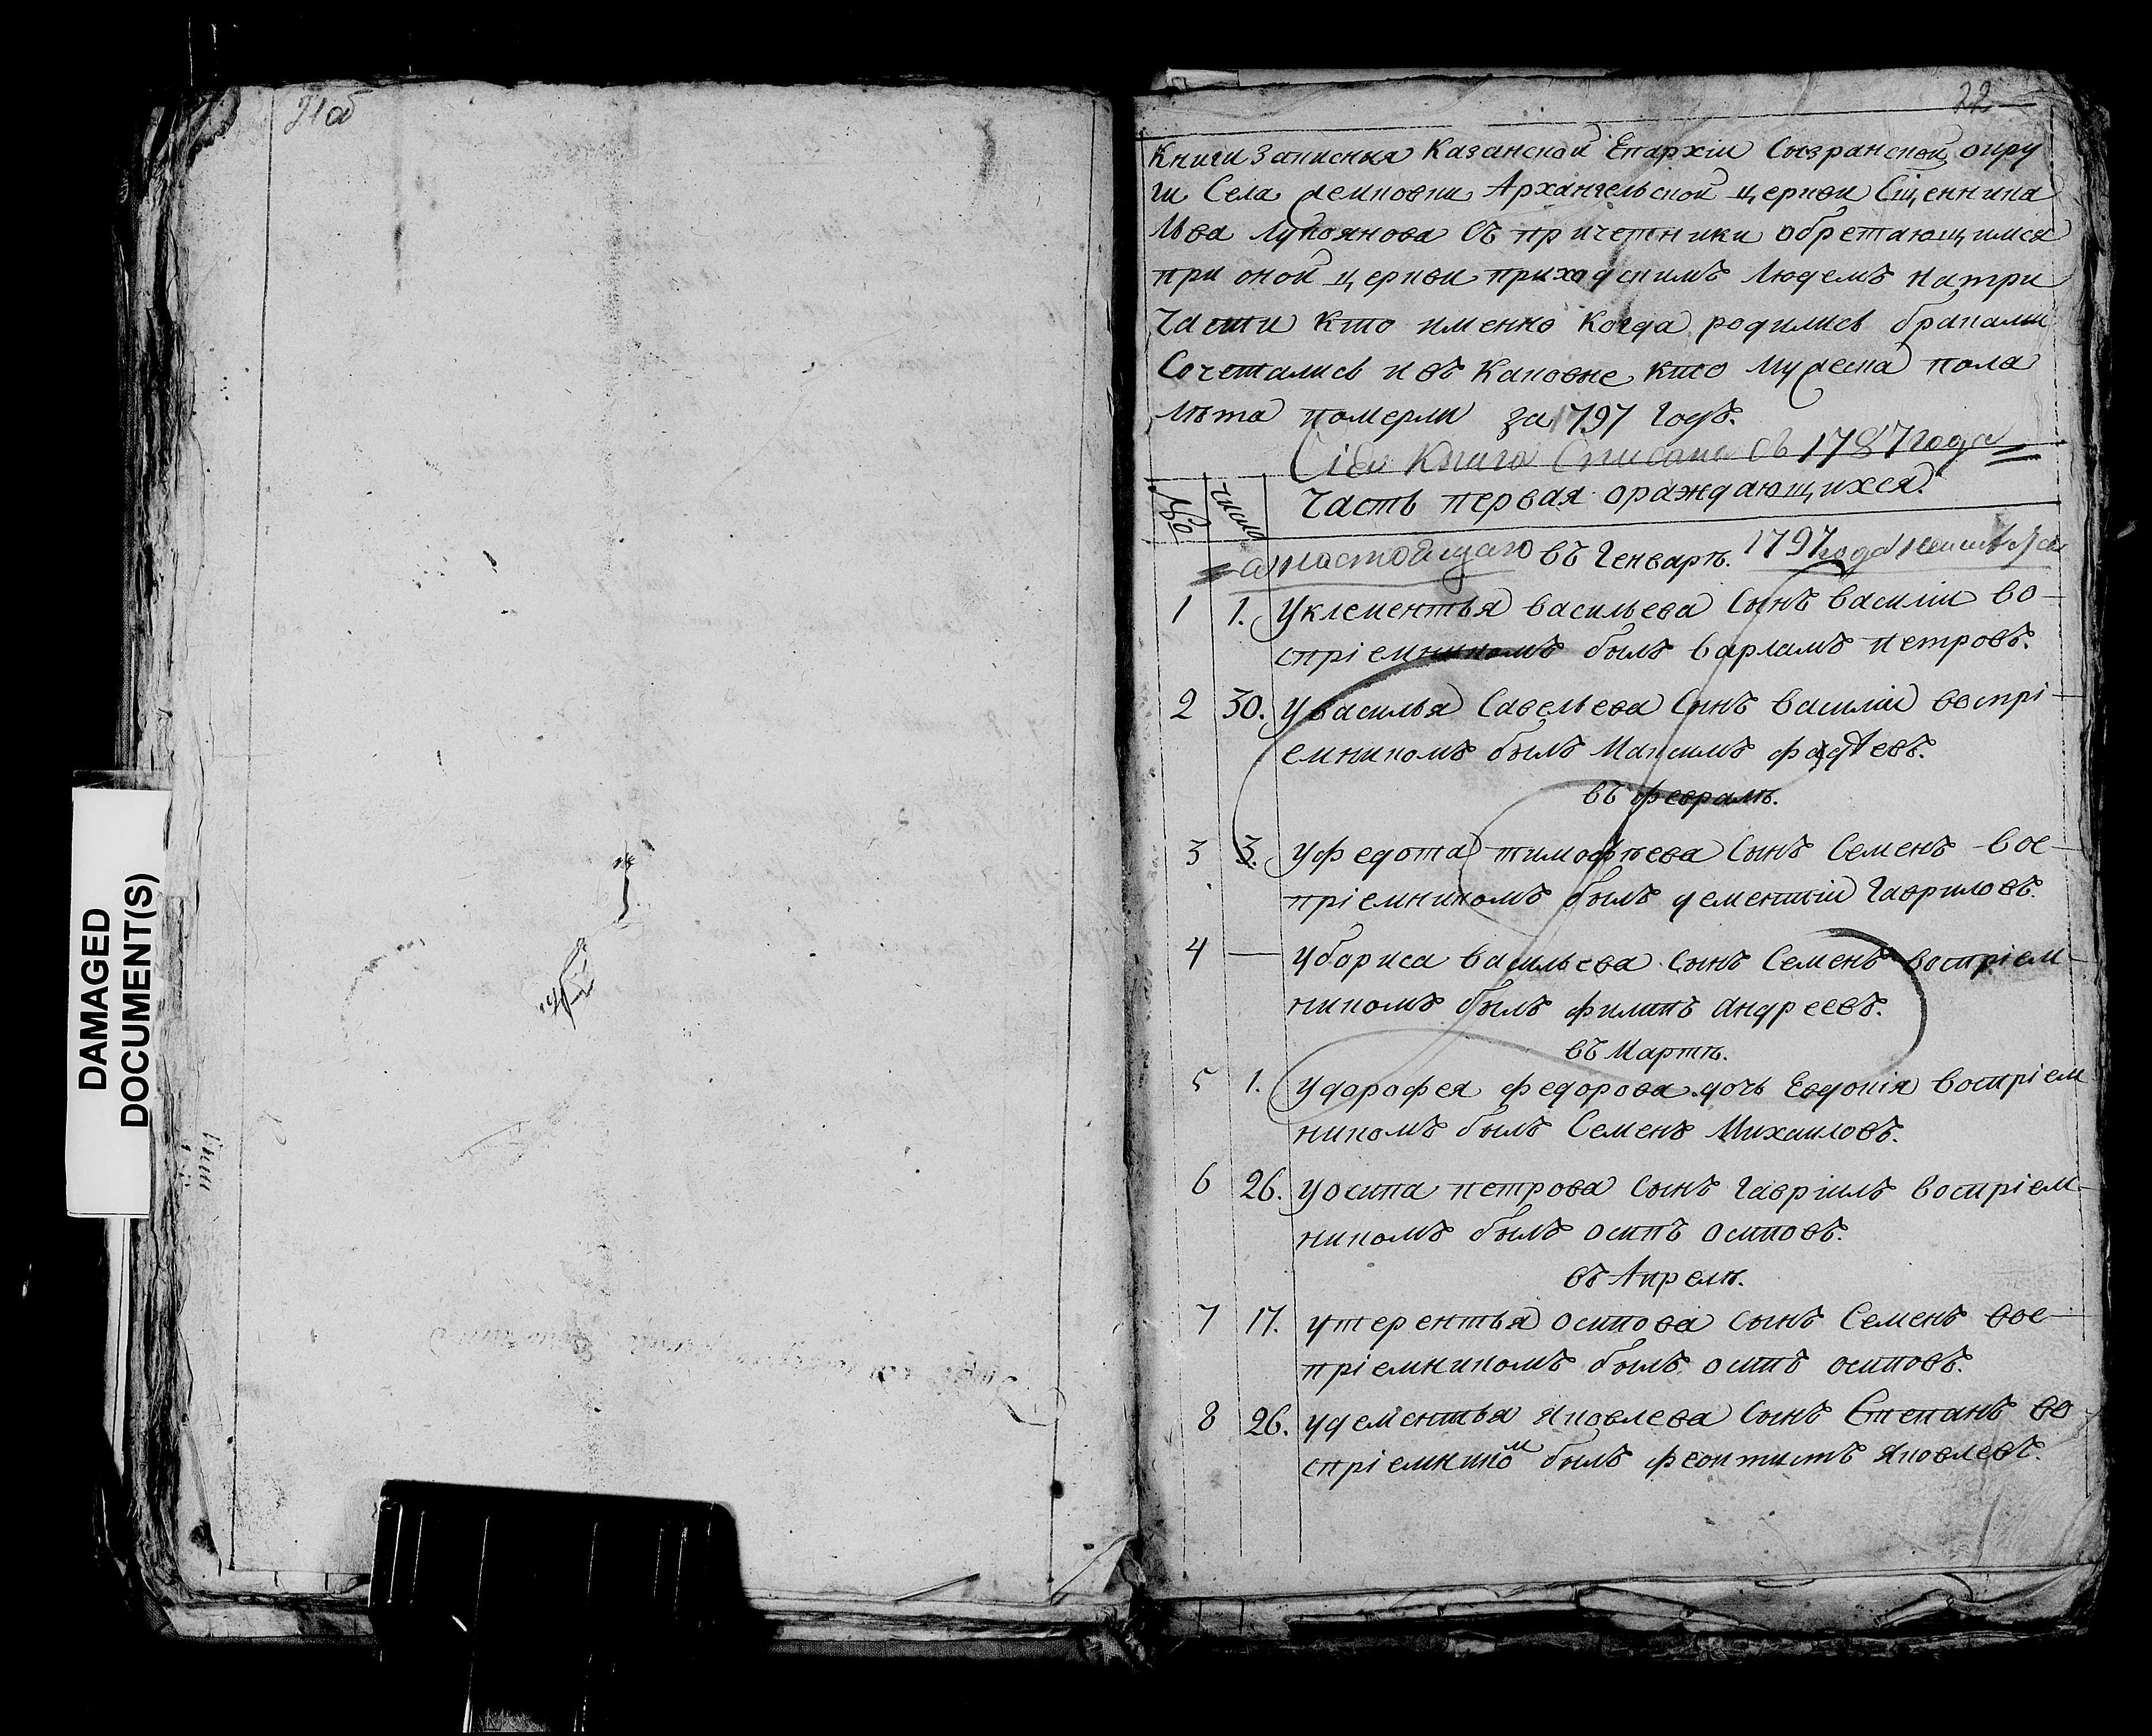 21об
DAMAGED
DOCUMENT(S)
22
Книги Записныя Казанской Епархіи Сызранской окру
ги Села Темновки Архангельской церкви Сщенника
Льва Лукоянова Съ причетники обретающимся
при оной церкви приходскимъ людемъ на три
части кто именно когда родились браками
Сочетались и въ какове кто мужеска пола
лѣта померли за 797 годъ.
Сія Книга Списана съ 1787 года
№ число Часть первая ораждающихся.
а настоящаго въ Генварѣ. 1797 года
1 1. У клементья васильева Сынъ василіи во-
спріемникомъ былъ варламъ петровъ.
2 30. У василья Савельева Сынъ василіи воспрі-
емникомъ былъ Максимъ фадѣевъ.
въ февралѣ.
3 3. У федота тимофѣева Сынъ Семенъ вос-
пріемникомъ былъ дементіи Гавриловъ.
4 — У бориса васильева Сынъ Семенъ воспріем-
никомъ былъ филипъ андреевъ.
въ Мартѣ.
5 1. У дорофея федорова дочь Евдокія воспріем
никомъ былъ Семенъ Михаиловъ.
6 26. У осипа петрова Сынъ Гавріилъ воспріем-
никомъ былъ осипъ осиповъ.
въ Апрелѣ.
7 17. У терентья осипова Сынъ Семенъ вос-
пріемникомъ былъ осипъ осиповъ.
8 26. У дементья яковлева Сынъ Степанъ во-
спріемником былъ феоктистъ яковлевъ.